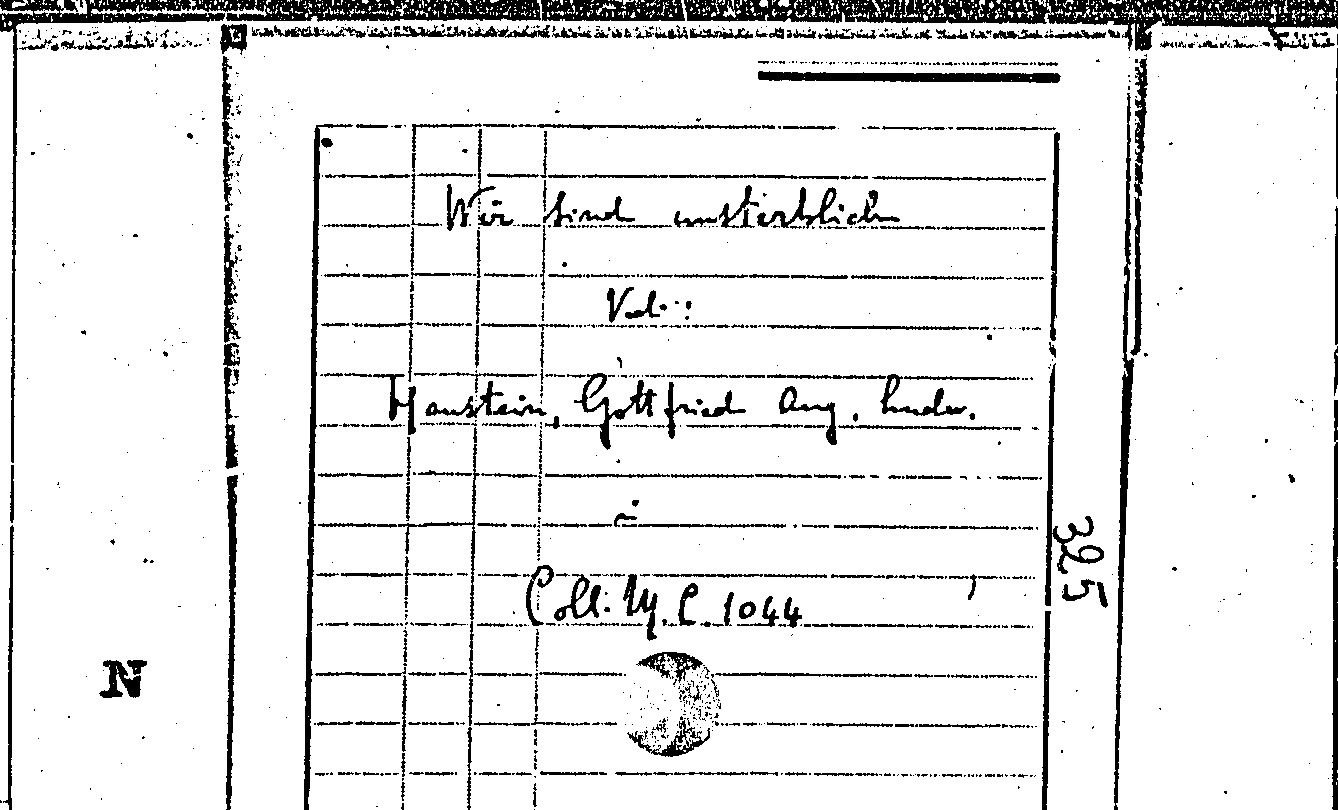 Wir sind unsterblich
Vid.:
Hanstein, Gottfried Aug. Ludw.
in
Coll. M. C. 1044
325
N